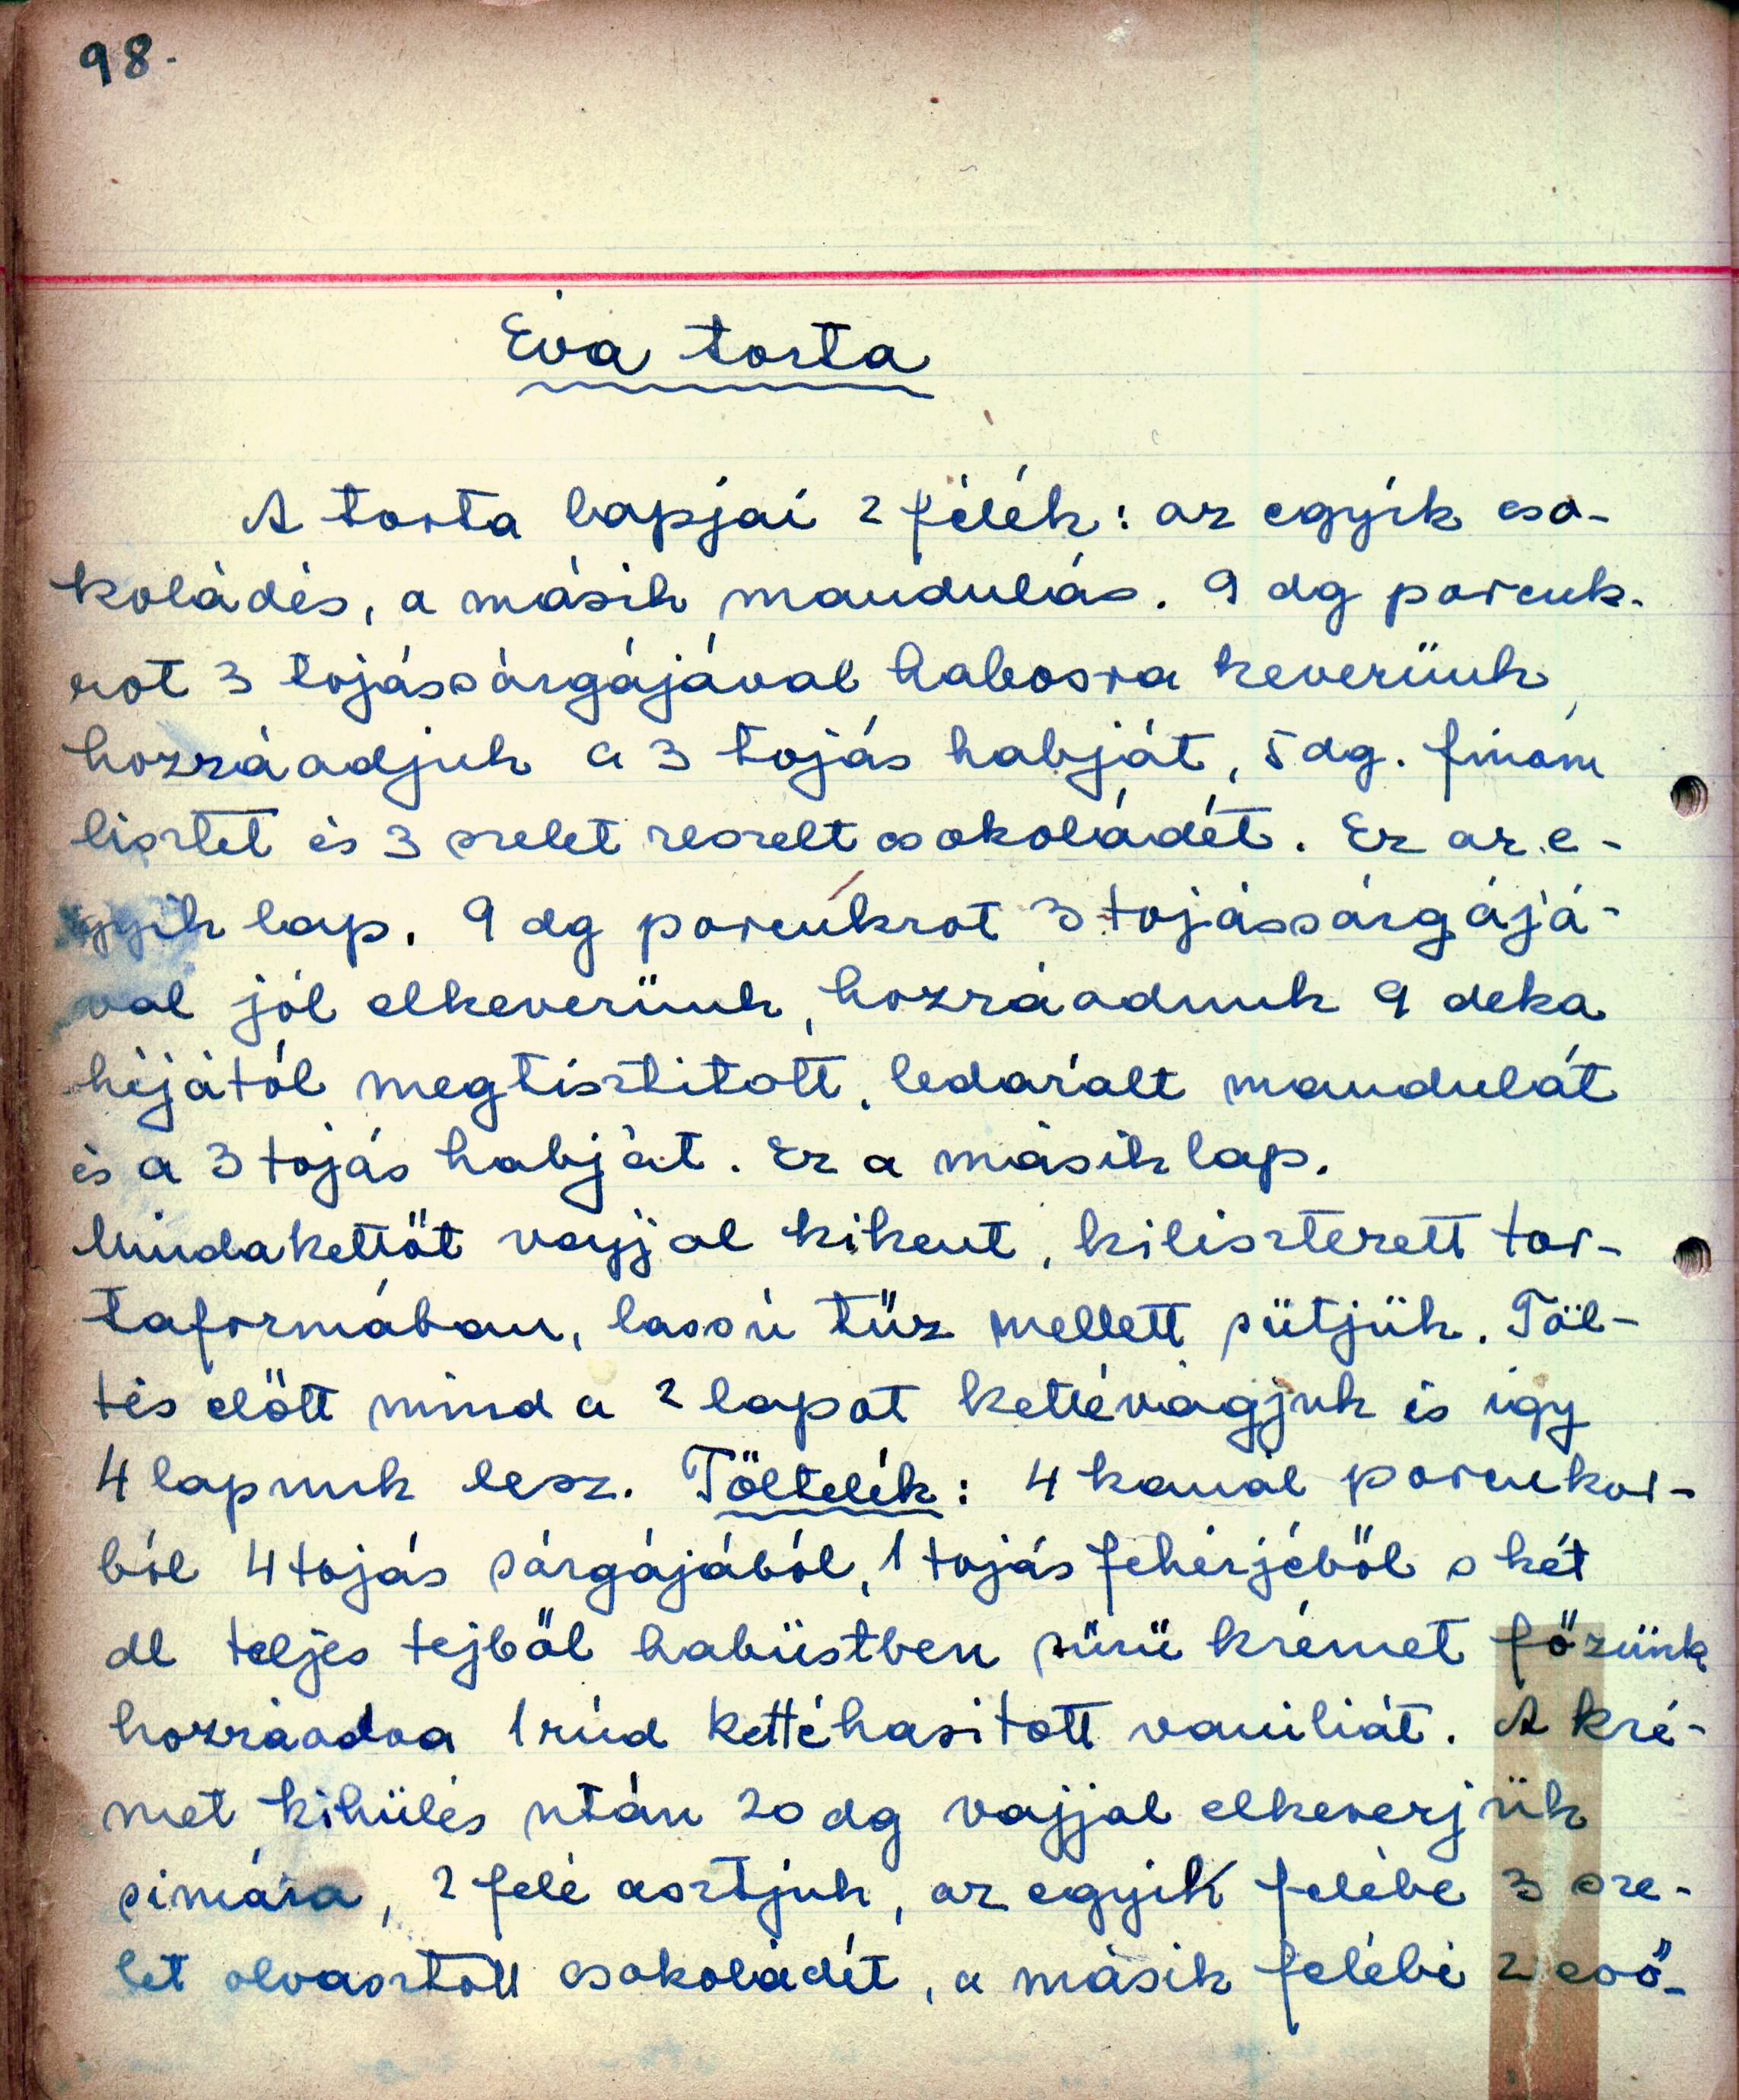 98.
Éva torta
A torta lapjai 2 félék: az egyik cso-
koládés, a másik mandulás. 9 dg porcuk-
rot 3 tojássárgájával habosra keverünk,
hozzáadjuk a 3 tojás habját, 5 dg. finom
lisztet és 3 szelet reszelt csokoládét. Ez az e-
gyik lap. 9 dg porcukrot 3 tojássárgájá-
val jól elkeverünk, hozzáadunk 9 deka
héjától megtisztított, ledarált mandulát
és a 3 tojás habját. Ez a másik lap.
Mindakettőt vajjal kikent, kilisztezett tor-
taformában, lassú tűz mellett sütjük. Töl-
tés előtt mind a 2 lapot kettévágjuk és igy
4 lapunk lesz. Töltelék: 4 kanál porcukor-
ból 4 tojás sárgájából, 1 tojás fehérjéből s két
dl teljes tejből habüstben sűrű krémet főzünk
hozzáadva 1 rúd kettéhasított vaniliát. A kré-
met kihülés után 20 dg vajjal elkeverjük
simára, 2 felé osztjuk, az egyik felébe 3 sze-
let olvasztott csokoládét, a másik felébe 2 evő-